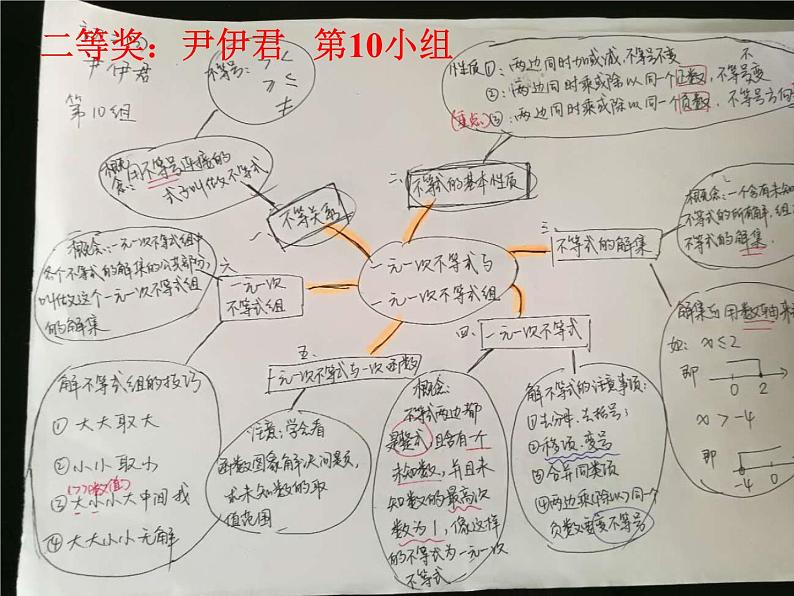 二等奖：尹伊君 第10小组
尹伊君
第10组
不等号：> <
≥ ≤
≠
概念：用不等号连接的
式子叫做不等式
一、不等关系
二、不等式的基本性质
性质①：两边同时加或减，不等号不变
②：两边同时乘或除以同一个正数，不等号不变
(重点)③：两边同时乘或除以同一个负数，不等号方向
三、不等式的解集
概念：一个含有未知
不等式的所有解，组
不等式的解集．
解集可用数轴来
如：x≤2
即
0 2
x＞-4
即
-4 0
一元一次不等式与
一元一次不等式组
四、一元一次不等式
概念：
不等式两边都
是整式，且含有一个
未知数，并且未
知数的最高次
数为1，像这样
的不等式为一元一次
不等式
解不等式的注意事项：
①去分母、去括号；
②移项、变号
③合并同类项
④两边乘(除以)同一个
负数需要变不等号
五、一元一次不等式与一次函数
注意：学会看
函数图象解决问题，
求未知数的取
值范围
六、一元一次
不等式组
概念：一元一次不等式组中
各个不等式的解集的公共部分，
叫做这个一元一次不等式组
的解集
解不等式组的技巧
①大大取大
②小小取小
③大小小大中间找
④大大小小无解